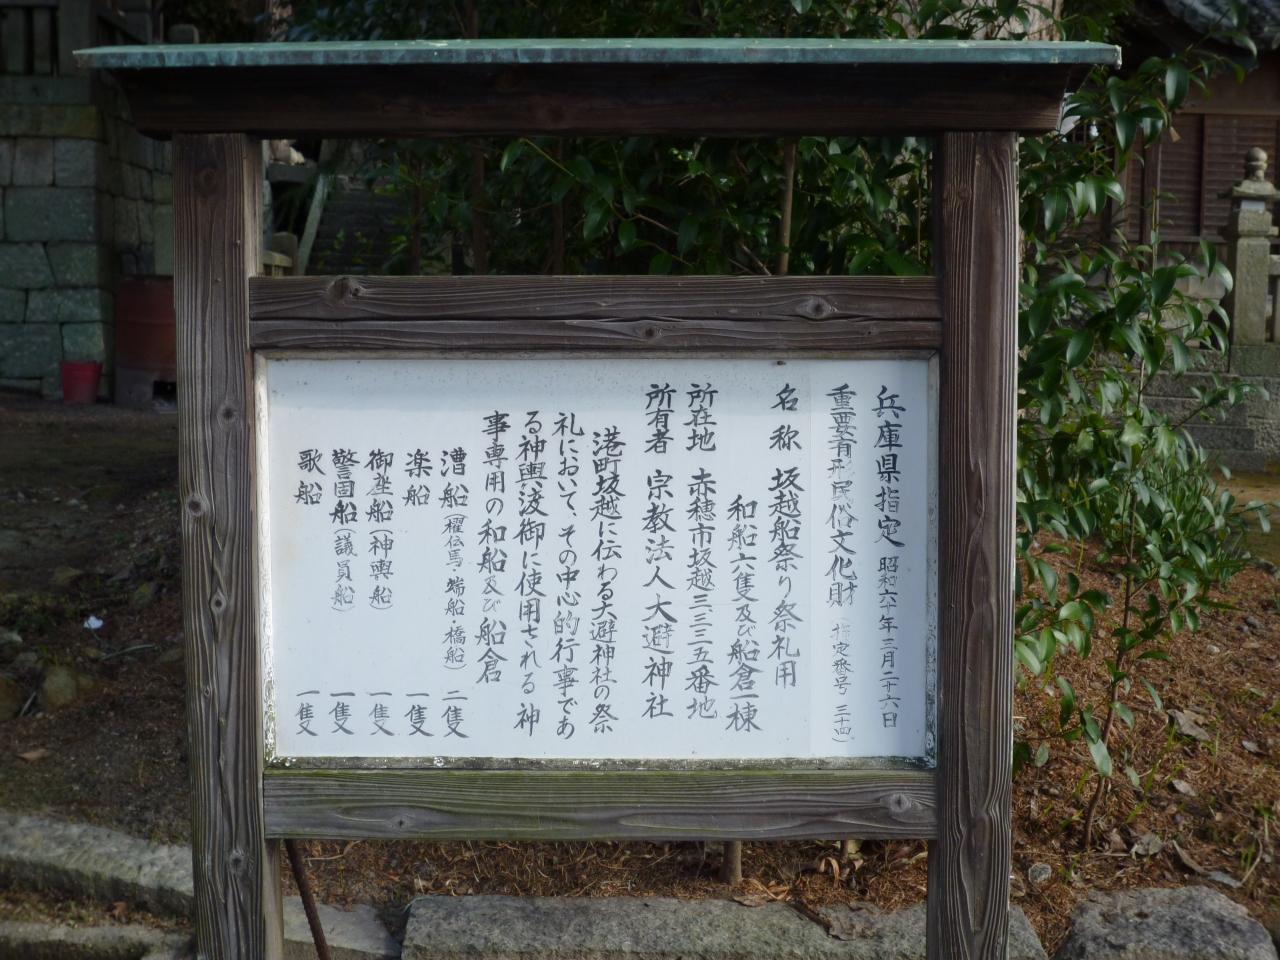 兵庫県指定 昭和六十年三月二十六日
重要有形民俗文化財（指定番号 三十四）
名称 坂越船祭り祭礼用
和船六隻及び船倉一棟
所在地 赤穂市坂越三三三五番地
所有者 宗教法人大避神社
港町坂越に伝わる大避神社の祭
礼において、その中心的行事であ
る神輿渡御に使用される神
事専用の和船及び船倉
漕船（櫂伝馬・端船・橋船） 二隻
楽船 一隻
御座船（神輿船） 一隻
警固船（議員船） 一隻
歌船 一隻